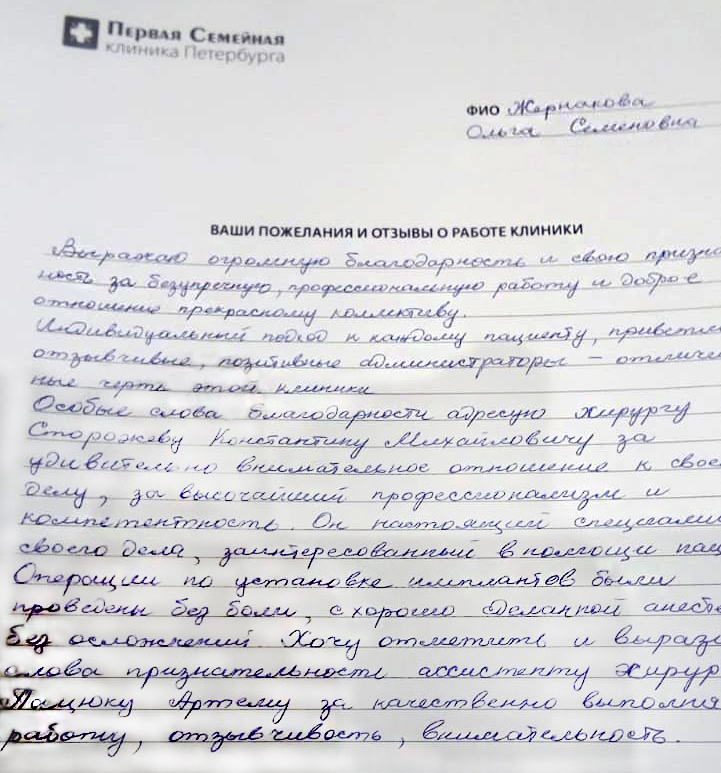 Первая Семейная
клиника Петербурга
ФИО Жернакова
Ольга Семеновна
ВАШИ ПОЖЕЛАНИЯ И ОТЗЫВЫ О РАБОТЕ КЛИНИКИ
Выражаю огромную благодарность и свою призна
ность за безупречную, профессиональную работу и доброе
отношение прекрасному коллективу.
Индивидуальный подход к каждому пациенту, приветли
отзывчивые, позитивные администраторы – отличи
ные черты этой клиники
Особые слова благодарности адресую хирургу
Сторожеву Константину Михайловичу за
удивительно внимательное отношение к свое
делу, за высочайший профессионализм и
компетентность. Он настоящий специали
своего дела, заинтересованный в помощи пац
Операции по установке имплантов были
проведены без боли, с хорошо сделанной анесте
без осложнений. Хочу отметить и выраз
слова признательности ассистенту хирур
Пацюку Артему за качественно выполне
работу, отзывчивость, внимательность.